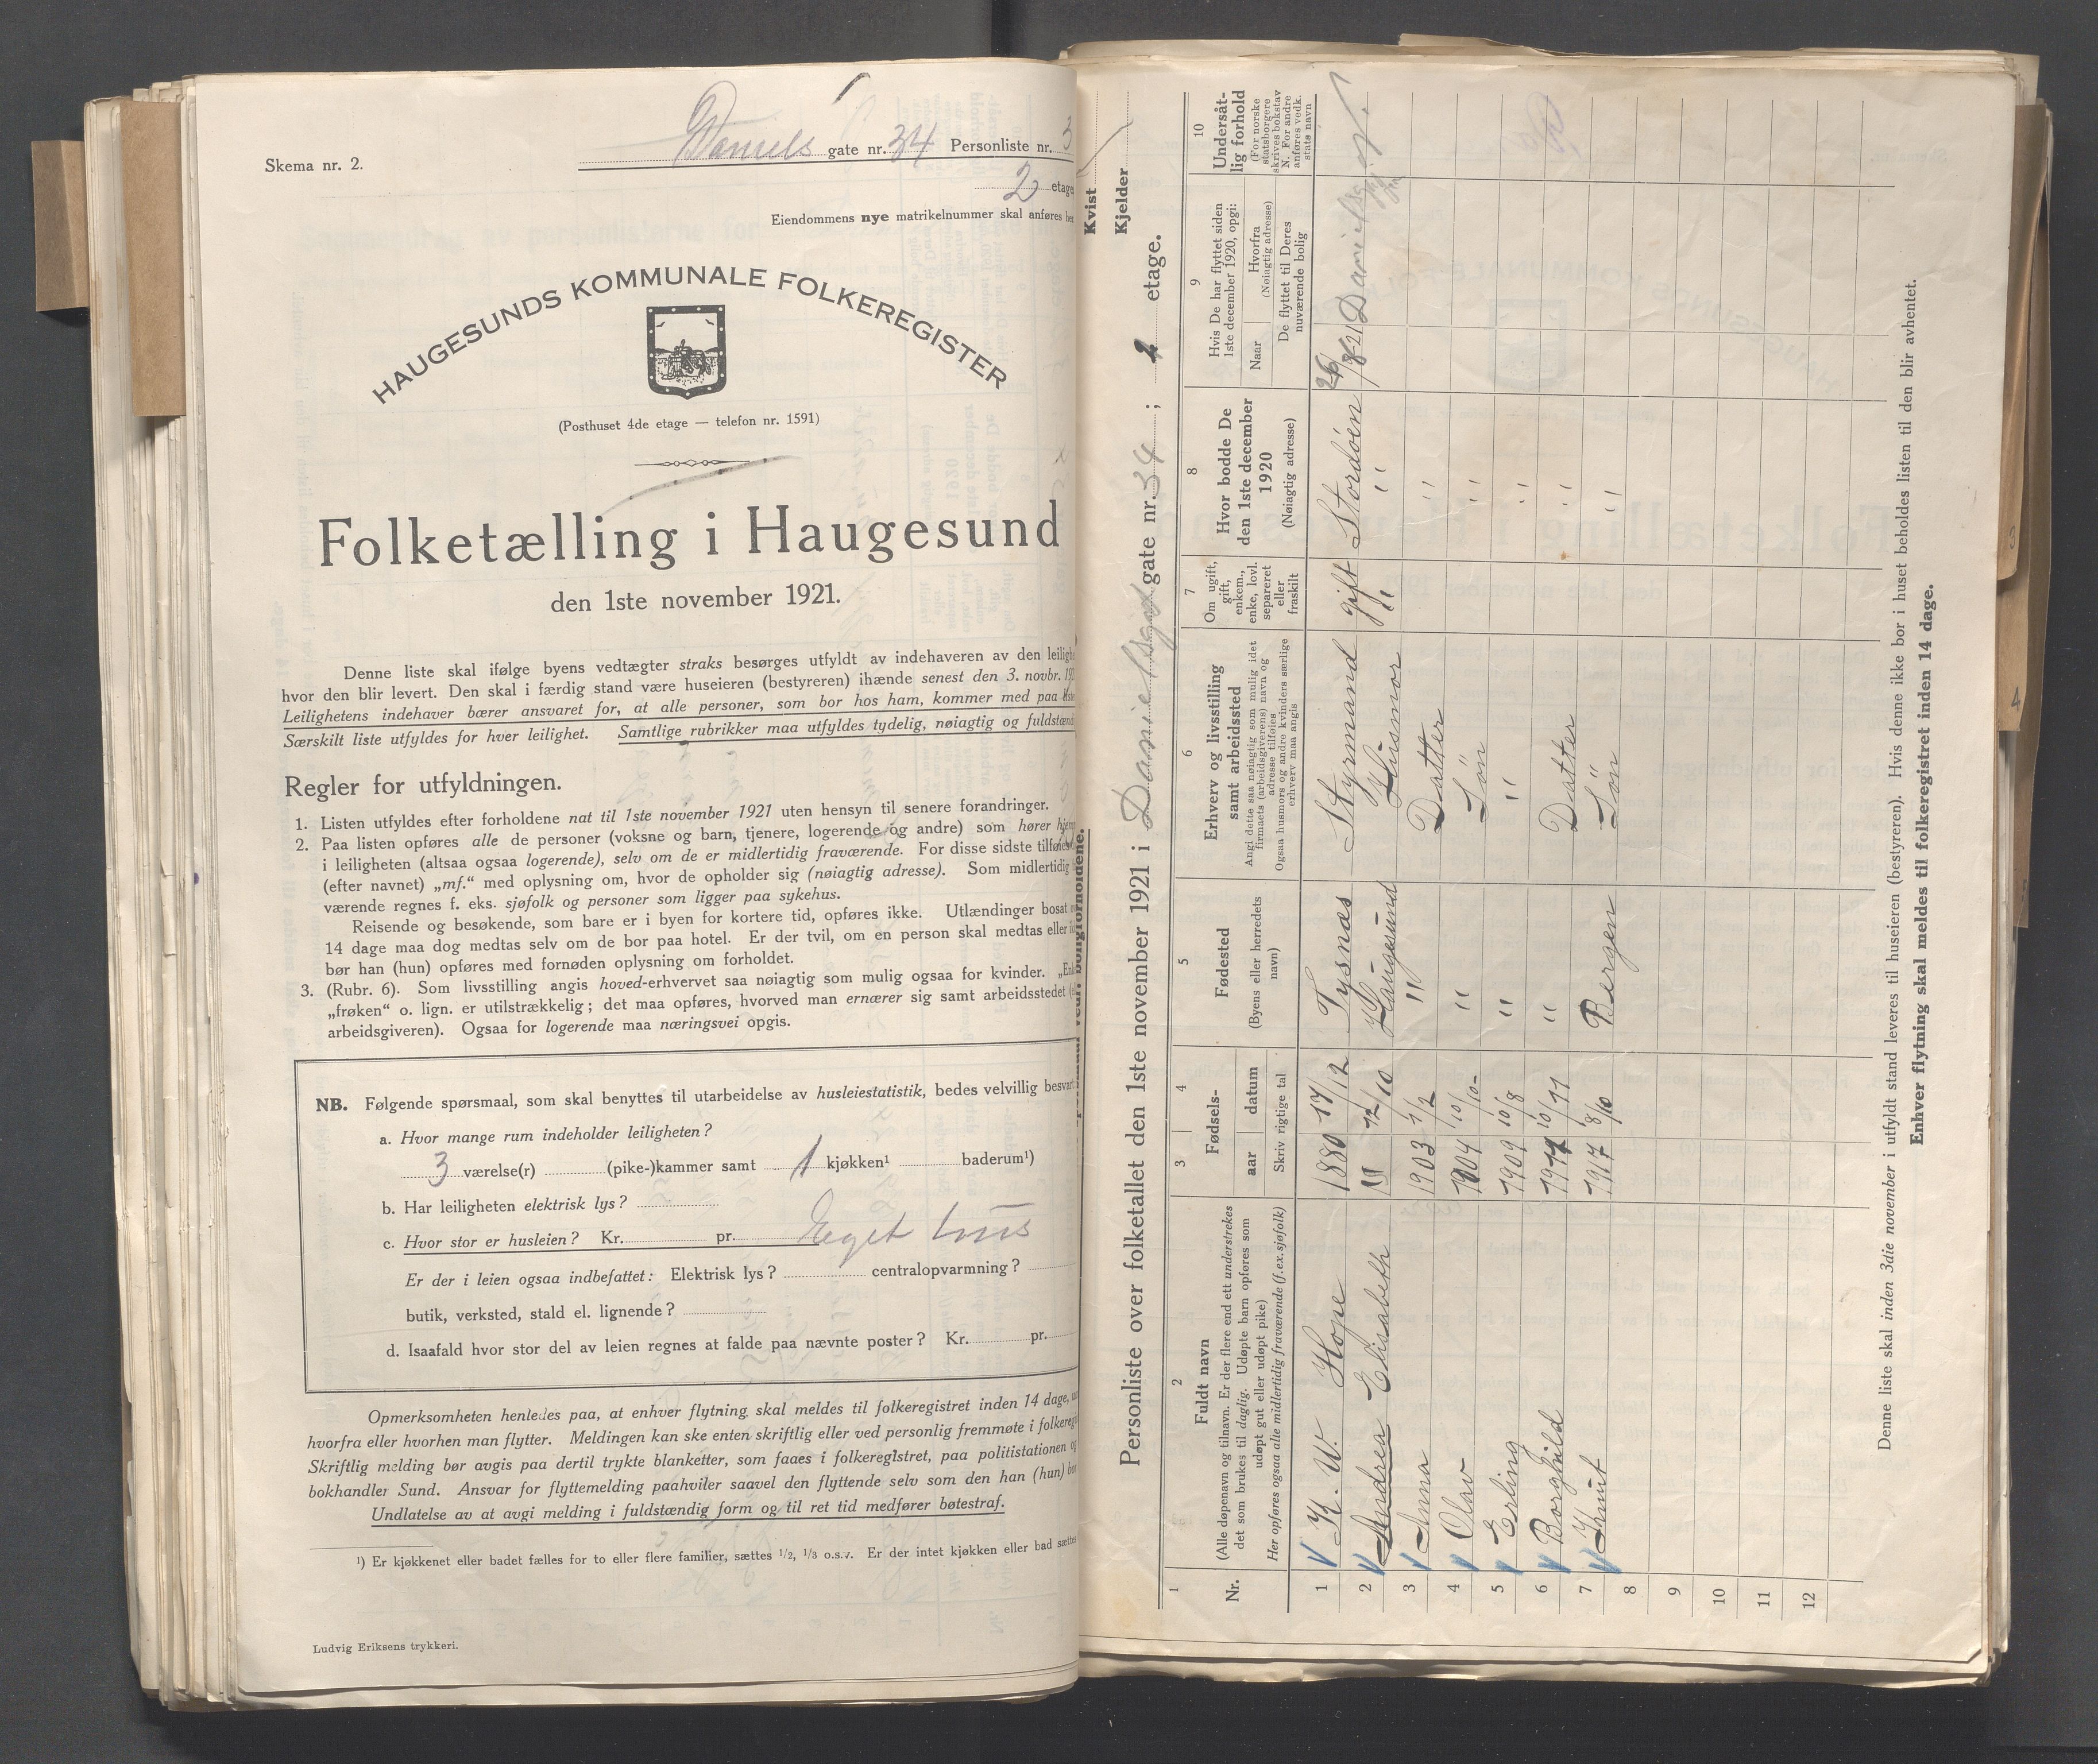 Skema nr. 2.
Daniels gate nr. 34 Personliste nr. 3
2 etage
Eiendommens nye matrikelnummer skal anføres her
HAUGESUNDS KOMMUNALE FOLKEREGISTER
(Posthuset 4de etage — telefon nr. 1591)
Folketælling i Haugesund
den 1ste november 1921.
Denne liste skal ifølge byens vedtægter straks besørges utfyldt av indehaveren av den
hvor den blir levert. Den skal i færdig stand være huseieren (bestyreren) ihænde senest den 3. novbr.
Leilighetens indehaver bærer ansvaret for, at alle personer, som bor hos ham, kommer med paa
Særskilt liste utfyldes for hver leilighet. Samtlige rubrikker maa utfyldes tydelig, nøiagtig og
Regler for utfyldningen.
1. Listen utfyldes efter forholdene nat til 1ste november 1921 uten hensyn til senere forandringer.
2. Paa listen opføres alle de personer (voksne og barn, tjenere, logerende og andre) som hører
i leiligheten (altsaa ogsaa logerende), selv om de er midlertidig fraværende. For disse sidste
(efter navnet) „mf.“ med oplysning om, hvor de opholder sig (nøiagtig adresse). Som midlertidig
værende regnes f. eks. sjøfolk og personer som ligger paa sykehus.
Reisende og besøkende, som bare er i byen for kortere tid, opføres ikke. Utlændinger bosat
14 dage maa dog medtas selv om de bor paa hotel. Er der tvil, om en person skal medtas eller
bør han (hun) opføres med fornøden oplysning om forholdet.
3. (Rubr. 6). Som livsstilling angis hoved-erhvervet saa nøiagtig som mulig ogsaa for kvinder.
„frøken“ o. lign. er utilstrækkelig; det maa opføres, hvorved man ernærer sig samt arbeidsstedet
arbeidsgiveren). Ogsaa for logerende maa næringsvei opgis.
NB. Følgende spørsmaal, som skal benyttes til utarbeidelse av husleiestatistik, bedes velvillig
a. Hvor mange rum indeholder leiligheten?
3 værelse(r) (pike-)kammer samt 1 kjøkken¹ baderum¹)
b. Har leiligheten elektrisk lys?
c. Hvor stor er husleien? Kr. pr. Eget hus
Er der i leien ogsaa indbefattet: Elektrisk lys? centralopvarmning?
butik, verksted, stald el. lignende?
d. Isaafald hvor stor del av leien regnes at falde paa nævnte poster? Kr. pr.
Opmerksomheten henledes paa, at enhver flytning skal meldes til folkeregistret inden 14 dage,
hvorfra eller hvorhen man flytter. Meldingen kan ske enten skriftlig eller ved personlig fremmøte i
Skriftlig melding bør avgis paa dertil trykte blanketter, som faaes i folkeregistret, paa politistationen
bokhandler Sund. Ansvar for flyttemelding paahviler saavel den flyttende selv som den han (hun)
Undlatelse av at avgi melding i fuldstændig form og til ret tid medfører bøtestraf.
¹) Er kjøkkenet eller badet fælles for to eller flere familier, sættes 1/2, 1/3 o.s.v. Er der intet kjøkken eller bad sættes
Ludvig Eriksens trykkeri.
Kvist
Kjelder
Personliste over folketallet den 1ste november 1921 i Danielsgt gate nr. 34 ; 2 etage.
1 2 3 4 5 6 7 8 9 10
Nr.
Fuldt navn
(Alle døpenavn og tilnavn. Er der flere end ett understrekes
det som brukes til daglig. Udøpte barn opføres som
udøpt gut eller udøpt pike)
Her opføres ogsaa alle midlertidig fraværende (f.ex. sjøfolk)
Fødsels-
aar datum
Skriv rigtige tal
Fødested
(Byens eller herredets
navn)
Erhverv og livsstilling
samt arbeidssted
Angi dette saa nøiagtig som mulig idet
firmaets (arbeidsgiverens) navn og
adresse tilføies
Ogsaa husmors og andre kvinders særlige
erhverv maa angis
Om ugift,
gift,
enkem.,
enke, lovl.
separeret
eller
fraskilt
Hvor bodde De
den 1ste december
1920
(Nøiagtig adresse)
Hvis De har flyttet siden
1ste december 1920, opgi:
Naar Hvorfra
(Nøiagtig adresse)
De flyttet til Deres
nuværende bolig
Undersåt-
lig forhold
(For norske
statsborgere
skrives bokstav
N. For andre
anføres vedk.
stats navn
1 K. W. Hope 1880 17/12 Tysnæs Styrmand gift Stordøen 26/8 21 N.
2 Andrea Elisabeth 12/10 Haugesund Husmor " "
3 Anna 1903 1/2 " Datter "
4 Olav 1904 10/10 " Søn "
5 Erling 1909 10/8 " " "
6 Borghild 10/11 " Datter "
7 Knut 1917 8/10 Bergen Søn "
8
9
10
11
12
Denne liste skal inden 3die november i utfyldt stand leveres til huseieren (bestyreren). Hvis denne ikke bor i huset beholdes listen til den blir avhentet.
Enhver flytning skal meldes til folkeregistret inden 14 dage.